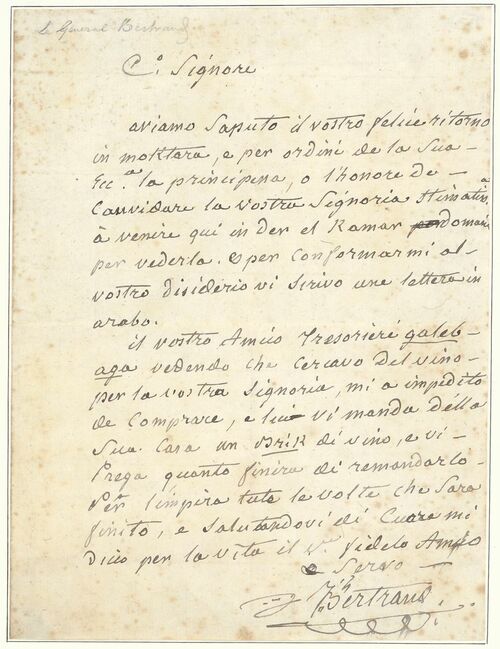 Le General Bertrand
C.º Signore
aviamo Saputo il vostro felice ritorno
in mokltara, e per ordini de la Sua
Ecc.ª la principena, o l'honore de
Canvidare la vostra Signoria Stimatis.ª
à venire qui in der el Kamar domani
per vederla. e per Conformarmi al
vostro disiderio vi Scrivo une lettera in
arabo.
il vostro Amico Tresorieré galeb
aga vedendo che Cercavo del vino
per la vostra Signoria, mi a impedito
de Comprare, e lui vi manda della
Sua Casa un Brik di vino, e vi
Prega quanto finira di remandarlo
Per l'impira tute le volte che Sara
finito, e Salutandovi di Cuore mi
dicio per la vita il V.º fidele Amico
e Servo
Bertrand